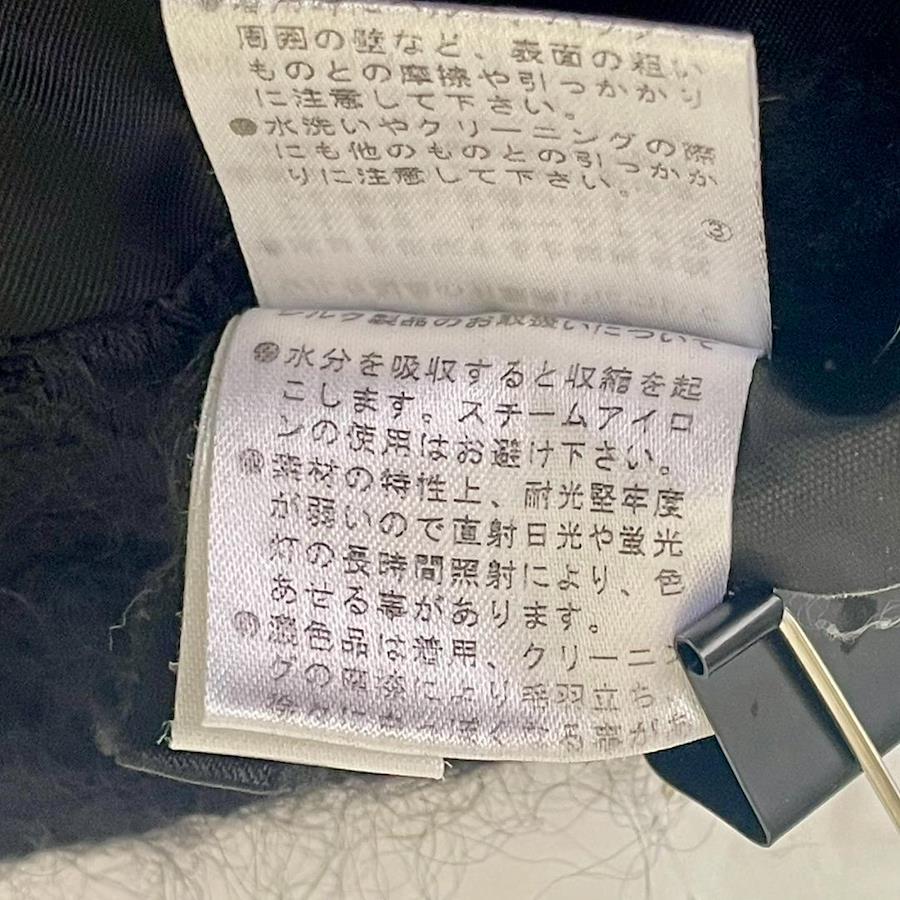 周囲の壁など、表面の粗い
ものとの摩擦や引っかかり
に注意して下さい。
●水洗いやクリーニングの際
にも他のものとの引っかか
りに注意して下さい。
③
シルク製品のお取扱いについて
●水分を吸収すると収縮を起
こします。スチームアイロ
ンの使用はお避け下さい。
●素材の特性上、耐光堅牢度
が弱いので直射日光や蛍光
灯の長時間照射により、色
あせる事があります。
●濃色品は着用、クリーニン
グの摩擦により毛羽立ち